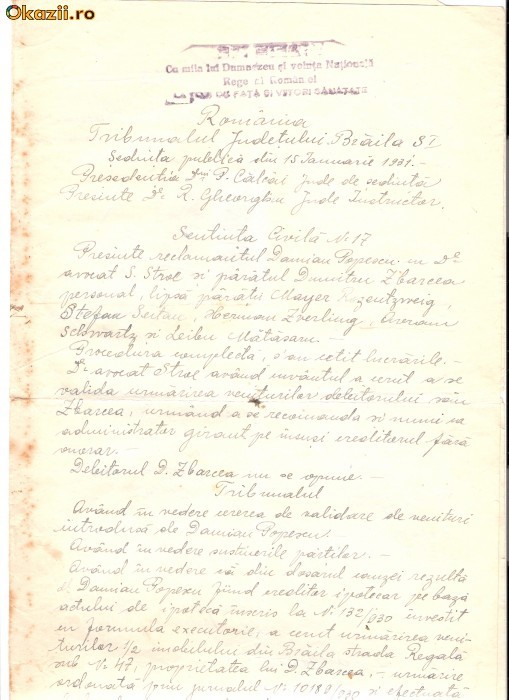 Okazii.ro
Cu mila lui Dumnezeu și voința Națională
Rege al României
LA TOȚI DE FAȚĂ ȘI VIITORI SĂNĂTATE
România
Tribunalul Județului Brăila S I
Sedința publică din 15 Ianuarie 1931.-
Președentia Dlui P. Călcâi Jude de sedință
Prezinte Dl R. Gheorghiu Jude Instructor.
Sentința Civilă No 17
Prezinte reclamantul Damian Popescu cu Dl
avocat S. Stroe si pârâtul Dumitru Zbarcea
personal, lipsă pârâtu Mayer Rozentzweig
Stefan Seitan, Herman Zverling, Avram
Schwartz si Leibu Mătăsaru.-
Procedura completă, s'au cetit lucrările.-
Dl avocat Stroe având cuvântul a cerut a se
valida urmărirea veniturilor debitorului său
Zbarcea, urmând a se recomanda si numi ca
administrator girant pe însuși creditorul fără
onorar.-
Debitorul D. Zbarcea nu se opune.-
Tribunalul
Având în vedere cererea de validare de venituri
introdusă de Damian Popescu.
Având în vedere susținerile părților.-
Având în vedere că din dosarul cauzei rezultă
că Damian Popescu fiind creditor ipotecar pe baza
actului de ipotecă înscris la No 132/930 investit
cu formula executorie, a cerut urmărirea veni-
turilor 1/2 imobilului din Brăila strada Regală
sub No 47, proprietatea lui D. Zbarcea,- urmărire
ordonată prin jurnalul No 10189/930 si efectuată